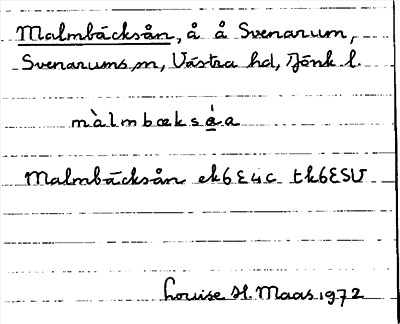 Malmbäcksån, å å Svenarum,
Svenarums sn, Västra hd, Jönk l.
màlmbæksá̱a
Malmbäcksån ek6E4c tk6ESV
Louise H. Maas 1972